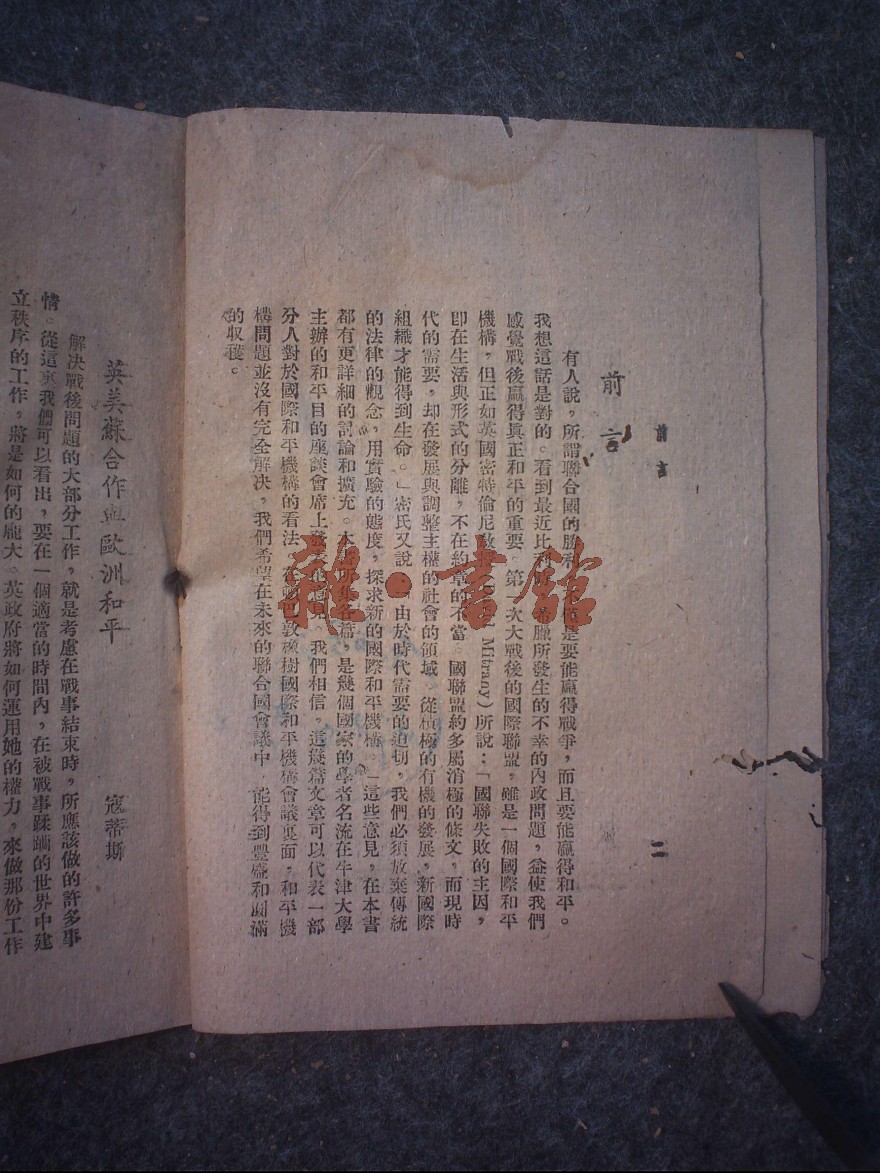 前言
二
前言
有人說，所謂聯合國的勝利，是要能贏得戰爭，而且要能贏得和平。
我想這話是對的。看到最近比利時希臘所發生的不幸的內政問題，益使我們
感覺戰後贏得真正和平的重要。第一次大戰後的國際聯盟，雖是一個國際和平
機構，但正如英國密特倫尼教授 Mitrany）所說：「國聯失敗的主因，
卽在生活與形式的分離，不在約章的不當。國聯盟約多屬消極的條文，而現時
代的需要，却在發展與調整主權的社會的領域。從積極的有機的發展，新國際
組織才能得到生命。」密氏又說「由於時代需要的迫切，我們必須放棄傳統
的法律的觀念，用實驗的態度，探求新的國際和平機構。」這些意見，在本書
都有更詳細的討論和擴充。本書所集各篇，是幾個國家的學者名流在牛津大學
主辦的和平目的座談會席上發表的意見。我們相信，這幾篇文章可以代表一部
分人對於國際和平機構的看法。在頓巴敦橡樹國際和平機構會議裏面，和平機
構問題並沒有完全解決，我們希望在未來的聯合國會議中，能得到豐盛和圓滿
的收穫。
英美蘇合作與歐洲和平
寇蒂斯
解決戰後問題的大部分工作，就是考慮在戰事結束時，所應該做的許多事
情。從這裏我們可以看出，要在一個適當的時間內，在被戰事蹂躪的世界中建
立秩序的工作，將是如何的龐大。英政府將如何運用她的權力，來做那份工作
雜·書館